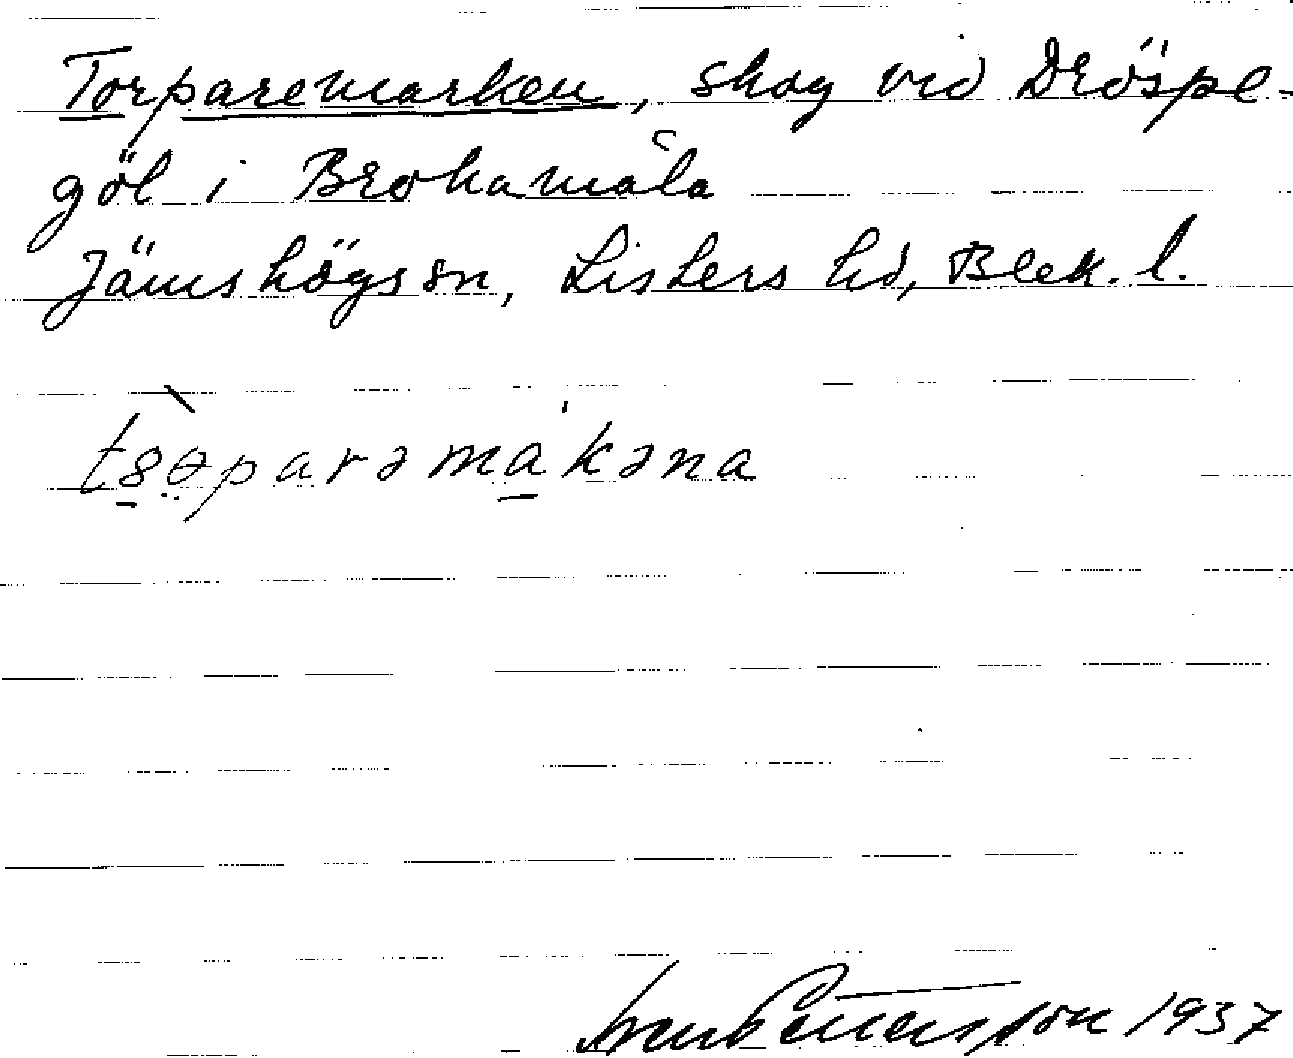 Torparemarken, skog vid Dröspe-
göl i Brokamåla
Jämshögs sn, Listers hd, Blek. l.
tsəparəmakəna
1937